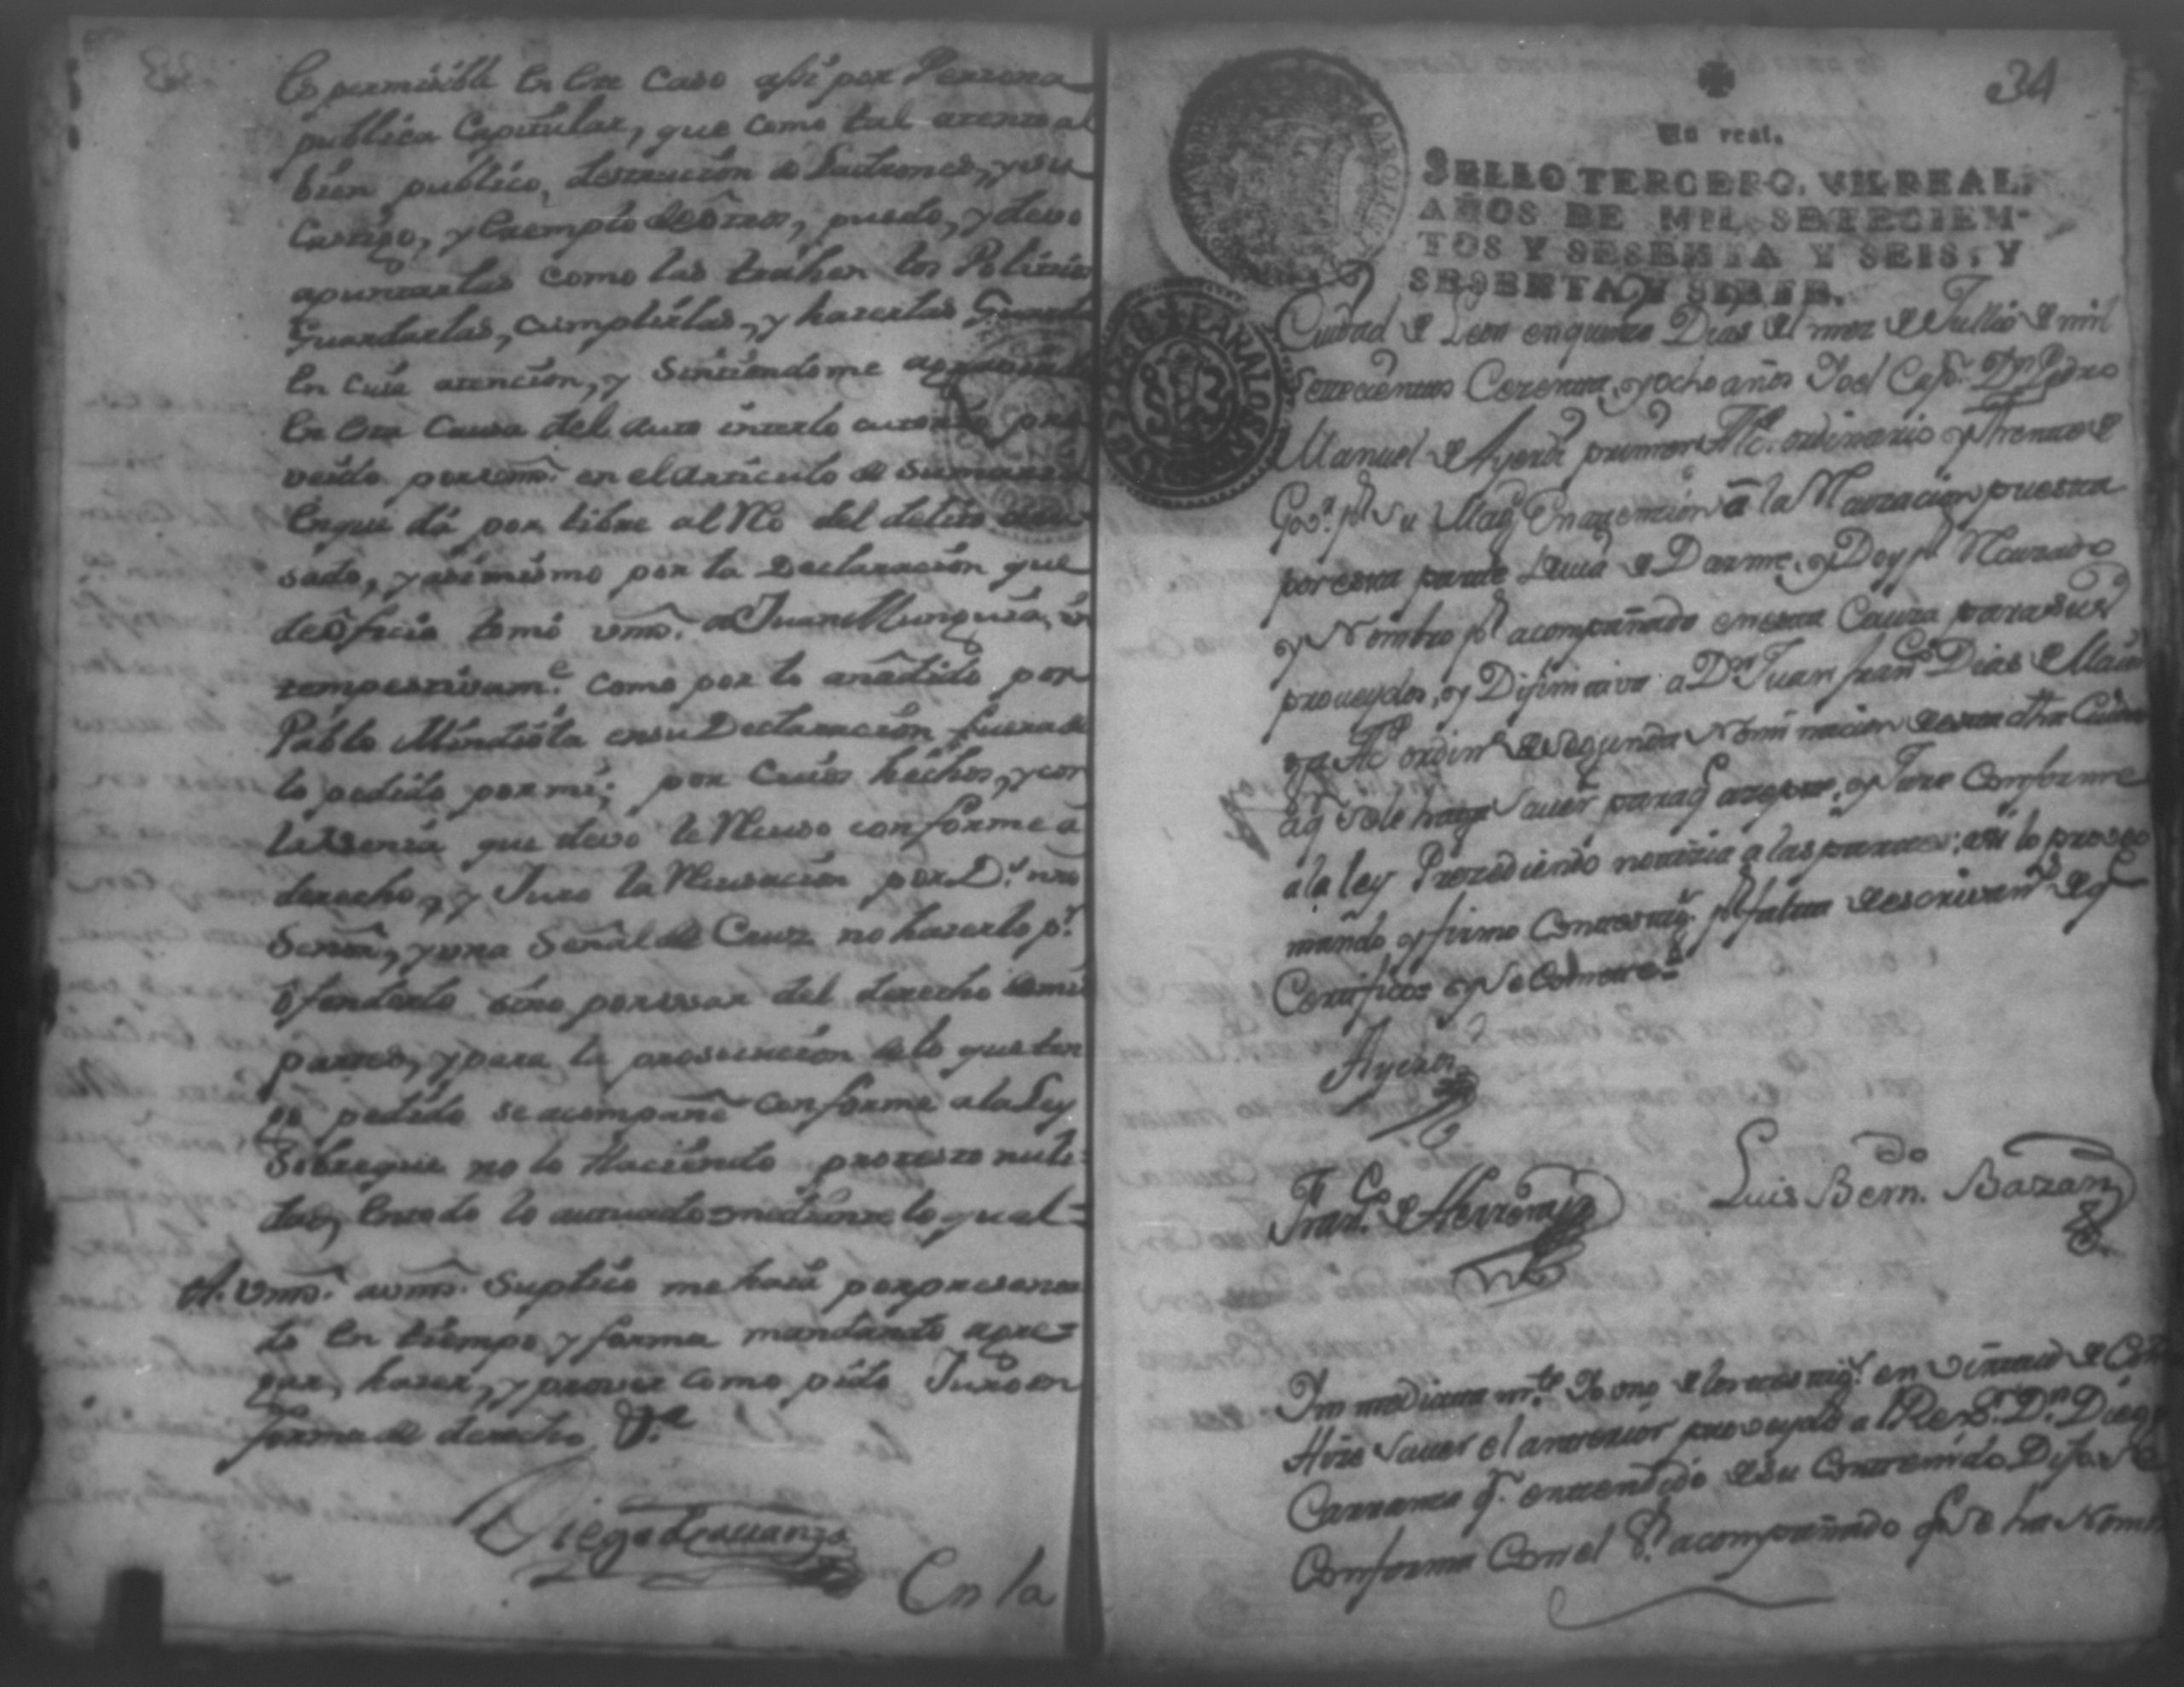 Es permisible en este caso assi por Persona
publica Capitular, que como tal atento al
bien publico, destruccion de Ladrones, y su
Castigo, y exemplo de ôtros, puedo, y devo
apuntarlas como las trahen los
Guardarlas, cumplirlas, y hacerlas
En cuia atencion, y Sintiendome
En esta Causa del auto interlocutorio pro
veido por vmd. en el articulo de
En que dá por libre al Rêo del delito
sado, y asimismo por la Declaracion que
de ôficio tomó vmd. a Juan Munguia, in
tempestivam.e como por lo añedido por
Pablo Mendiôla en su Declaracion fuera de
lo pedido por mi; por cuios hechos, y con
la venia que devo le Recuso conforme â
derecho, y Juro la Recusacion por D.s nro
Señor, y una Señal de Cruz no hacerlo p.r
ôfenderlo sino por usar del derecho de mi
parte, y para la prosecucion de lo que ten
go pedido se acompañe conforme a la Ley
Sobre que no lo Haciendo protesto nuli
dad, en todo lo actuado mediante lo qual=
A. Vmd. a vmd. Suplico me haia por presenta
do en tiempo y forma mandando agre=
gar, hacer, y prover como pido Juro en
forma de derecho &.a
Diego de Carranza
En la
34
Un real.
SELLO TERCERO, VN REAL,
AÑOS DE MIL SETECIEN-
TOS Y SESENTA Y SEIS, Y
SESENTA Y SIETE.
Ciudad de Leon en quinze Dias del mes de Jullio de mil
Settecientos Cesenta, y ocho años Yo el Cap.n D.n Pedro
Manuel de Ayerdi primer Alc.e ordinario y Thente de
Gov.r p.r Su Mag.d En atencion â la Recuzacion puesta
por esta parte devia de Darme, y Doy p.r Recuzado
y Nombro p.r acompañado en esta Cauza para sus
proveydos, y Difinitiva a D.n Juan Fran.co Dias de
Alc.e ordin.o de segunda Nominacion de esta dha Ciudad
a q.n se le haga Saver para q. azepte, y Jure Conforme
a la ley Prezediendo noticia a las partes; assi lo proveo
mando, y firmo Con testig.s p.r falta de escrivan.s de q.
Certifico= y se Comete=
Ayerdi
Fran.co de Herrera
Luis Bern.do Bazan
Im mediatam.te Yo uno de los testig.s en Virtud de
Hize Saver el anterior proveydo a l Rex.r D.n Diego
Carranza q.n entendido de su Contenido Dijo se
Conforma Con el S.r acompañado q. se ha Nom